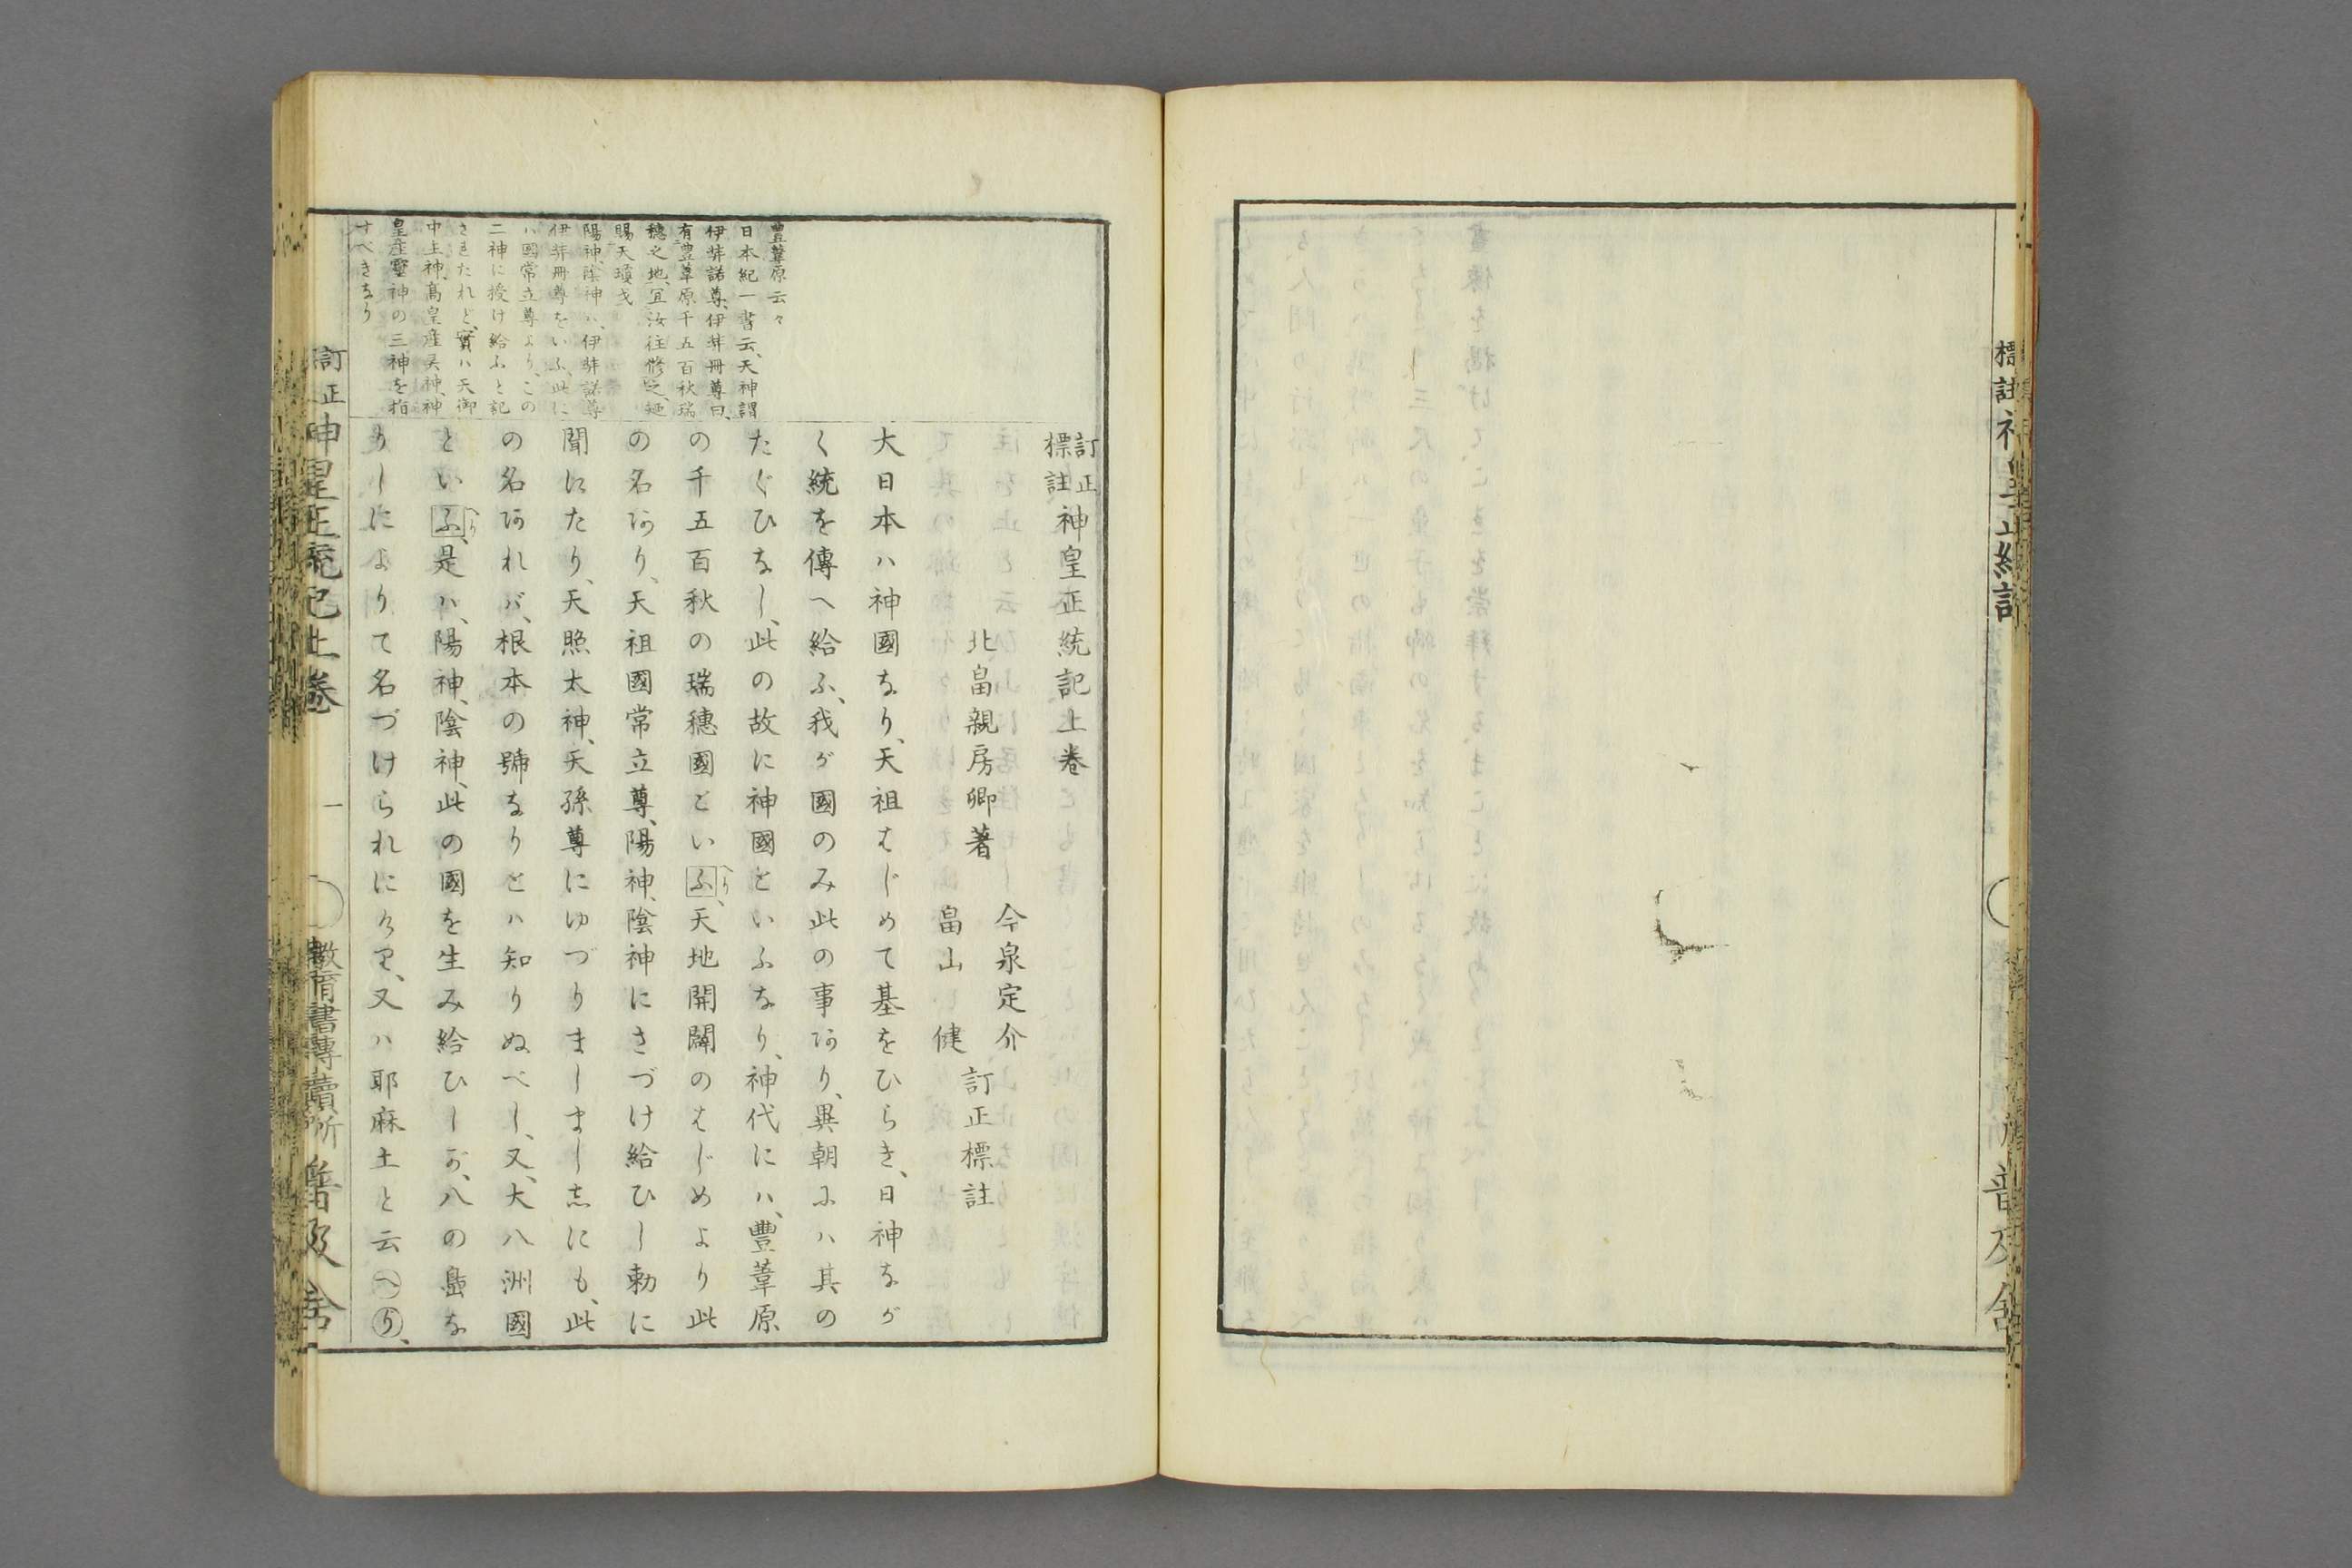 標註神皇正統記
普及舍
訂正
標註
神皇正統記上卷
北畠親房卿著
今泉定介
畠山健
訂正標註
大日本ハ神國なり、天祖はじめて基をひらき、日神なが
く統を傳へ給ふ、我が國のみ此の事あり、異朝にハ其の
たぐひなし、此の故に神國といふなり、神代にハ、豐葦原
の千五百秋の瑞穗國といふ(へり)、天地開闢のはじめより此
の名あり、天祖國常立尊、陽神、陰神にさづけ給ひし勅に
聞にたり、天照太神、天孫尊にゆづりましましゝにも、此
の名あれバ、根本の號なりとハ知りぬべし、又、大八洲國
といふ(へり)、是ハ、陽神、陰神、此の國を生み給ひしが、八の島な
りしによりて名づけられにけり、又ハ耶麻土と云へり、
豐葦原云々
日本紀一書云、天神謂
伊弉諾尊、伊弉冊尊曰、
有豐葦原千五百秋瑞
穗之地、宜汝往修之、廼
賜天瓊戈
陽神、陰神ハ、伊弉諾尊
伊弉冊尊をいふ、此に
ハ國常立尊より、この
二神に授け給ふと記
されたれど、實ハ天御
中主神、高皇産灵神、神
皇産靈神の三神を指
すべきなり
訂正神皇正統記上卷
一
教育書專賣所 普及舍